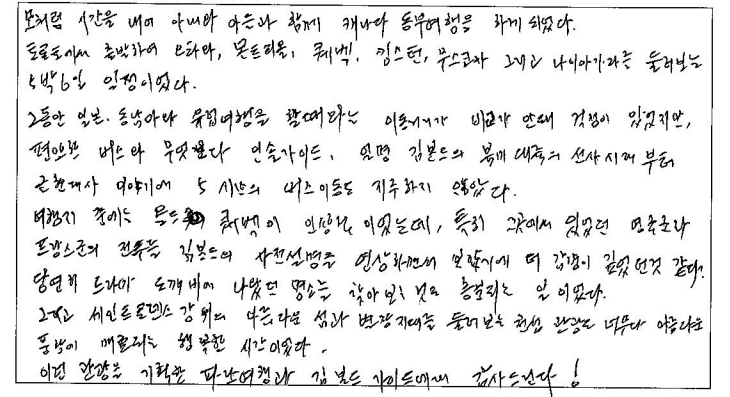 모처럼 시간을 내어 아내와 아들과 함께 캐나다 동부여행을 하게 되었다.
토론토에서 출발하여 오타와, 몬트리올, 퀘벡, 킹스턴, 무스코카 그리고 나이아가라를 둘러보는
5박6일 일정이었다.
그동안 일본, 동남아와 유럽여행을 할때와는 이동거리가 비교가 안돼 걱정이 있었지만,
편안한 버스와 무엇보다 인솔가이드, 일명 김본드의 북미대륙의 선사시대부터
근현대사 이야기에 5시간의 버스이동도 지루하지 않았다.
여행지 중에는 퀘벡이 인상적이었는데, 특히 그곳에서 있었던 영국군과
프랑스군의 전투를 김본드의 사전설명을 연상하면서 보았기에 더 감명이 깊었던것 같다.
당연히 드라마 도깨비에 나왔던 명소를 찾아보는 것도 흥분되는 일이었다.
그리고 세인트로렌스강 위의 아름다운 섬과 별장지대를 둘러보는 천섬 관광도 너무나 아름다운
풍광이 매료되는 행복한 시간이었다.
이런 관광을 기획한 파란여행과 김본드 가이드에게 감사드린다!